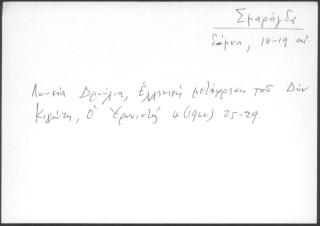 Σμαράγδα
δόμνα, 18-19 αἰ
Λουκία Δρούλια, Ἑλληνική μετάφραση τοῦ Δόν
Κιχώτη, Ὁ Ἐρανιστής 4 (1966) 25-29.